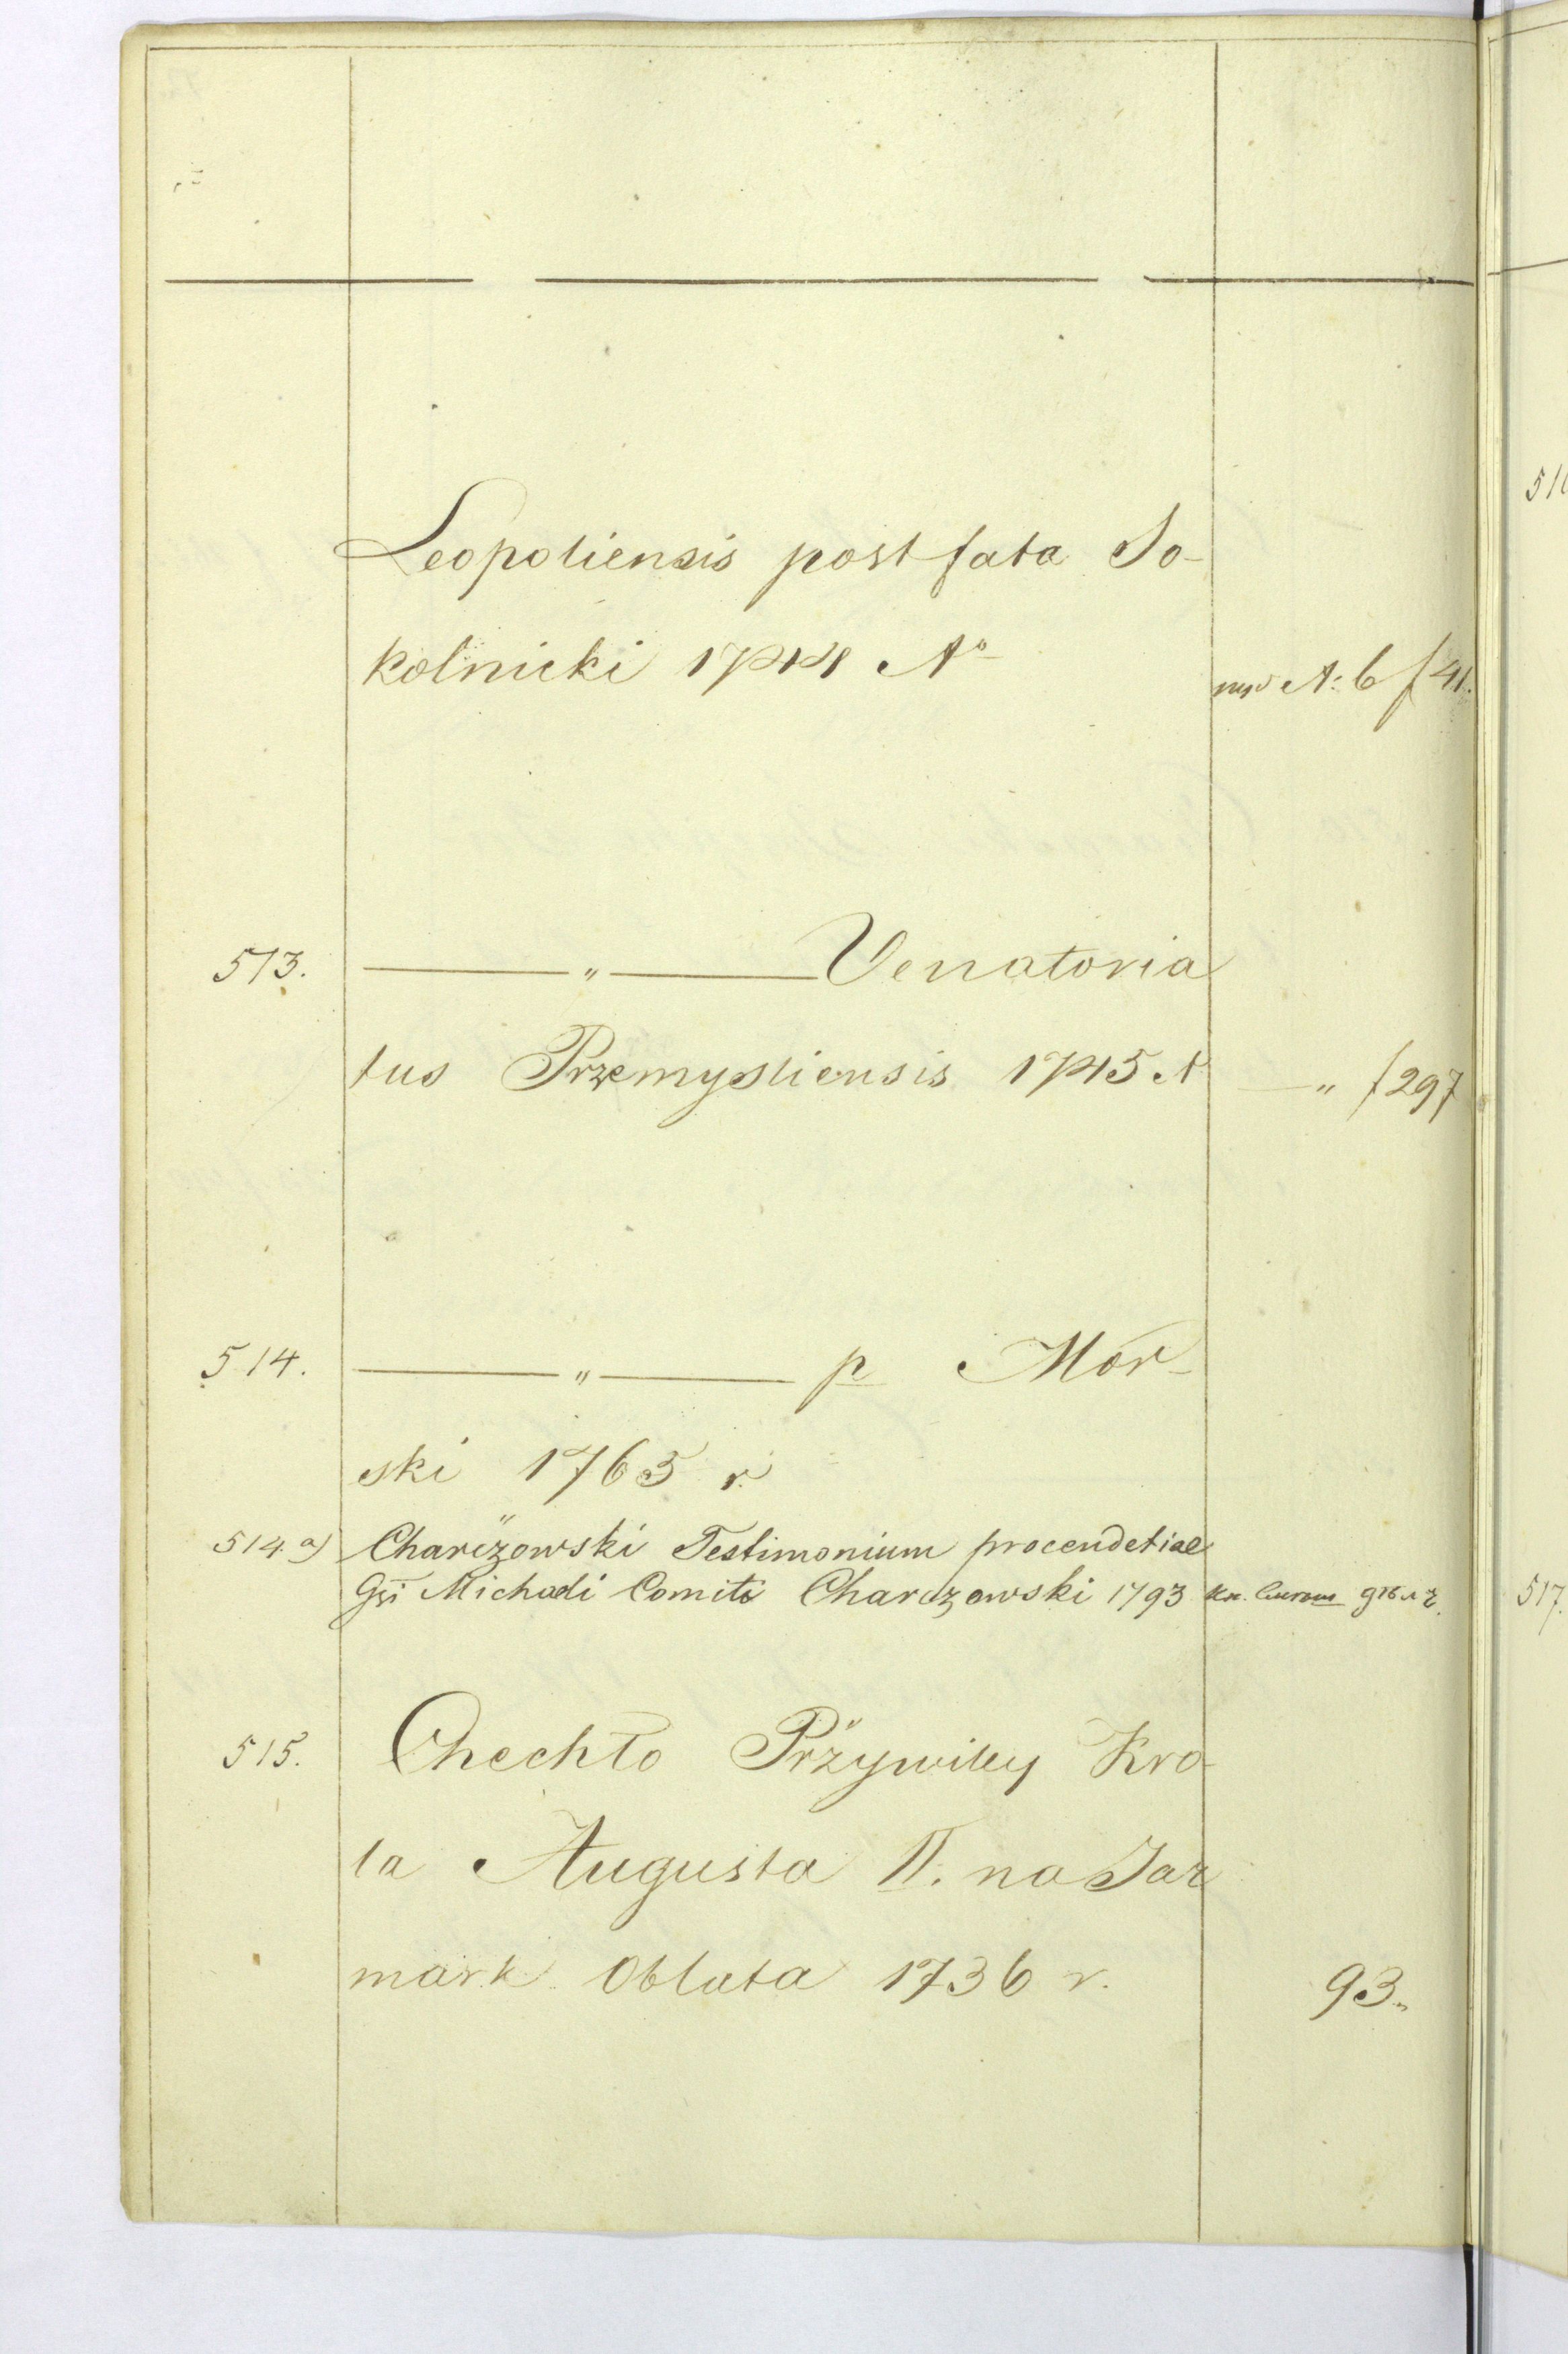 Leopoliensis post fata So-
kolnicki 1744 Aº A: 6 f 41.
513. ———„——— Venatoria
tus Przemysliensis 1745 A —„ f 297
514. ———„——— p Mor-
ski 1763 r.
514.a) Charczowski Testimonium procendetial
Gsi Michaeli Comiti Charczowski 1793
515. Chechło Przywiley Kro-
la Augusta II. na Jar
mark Oblata 1736 r. 93.
517.